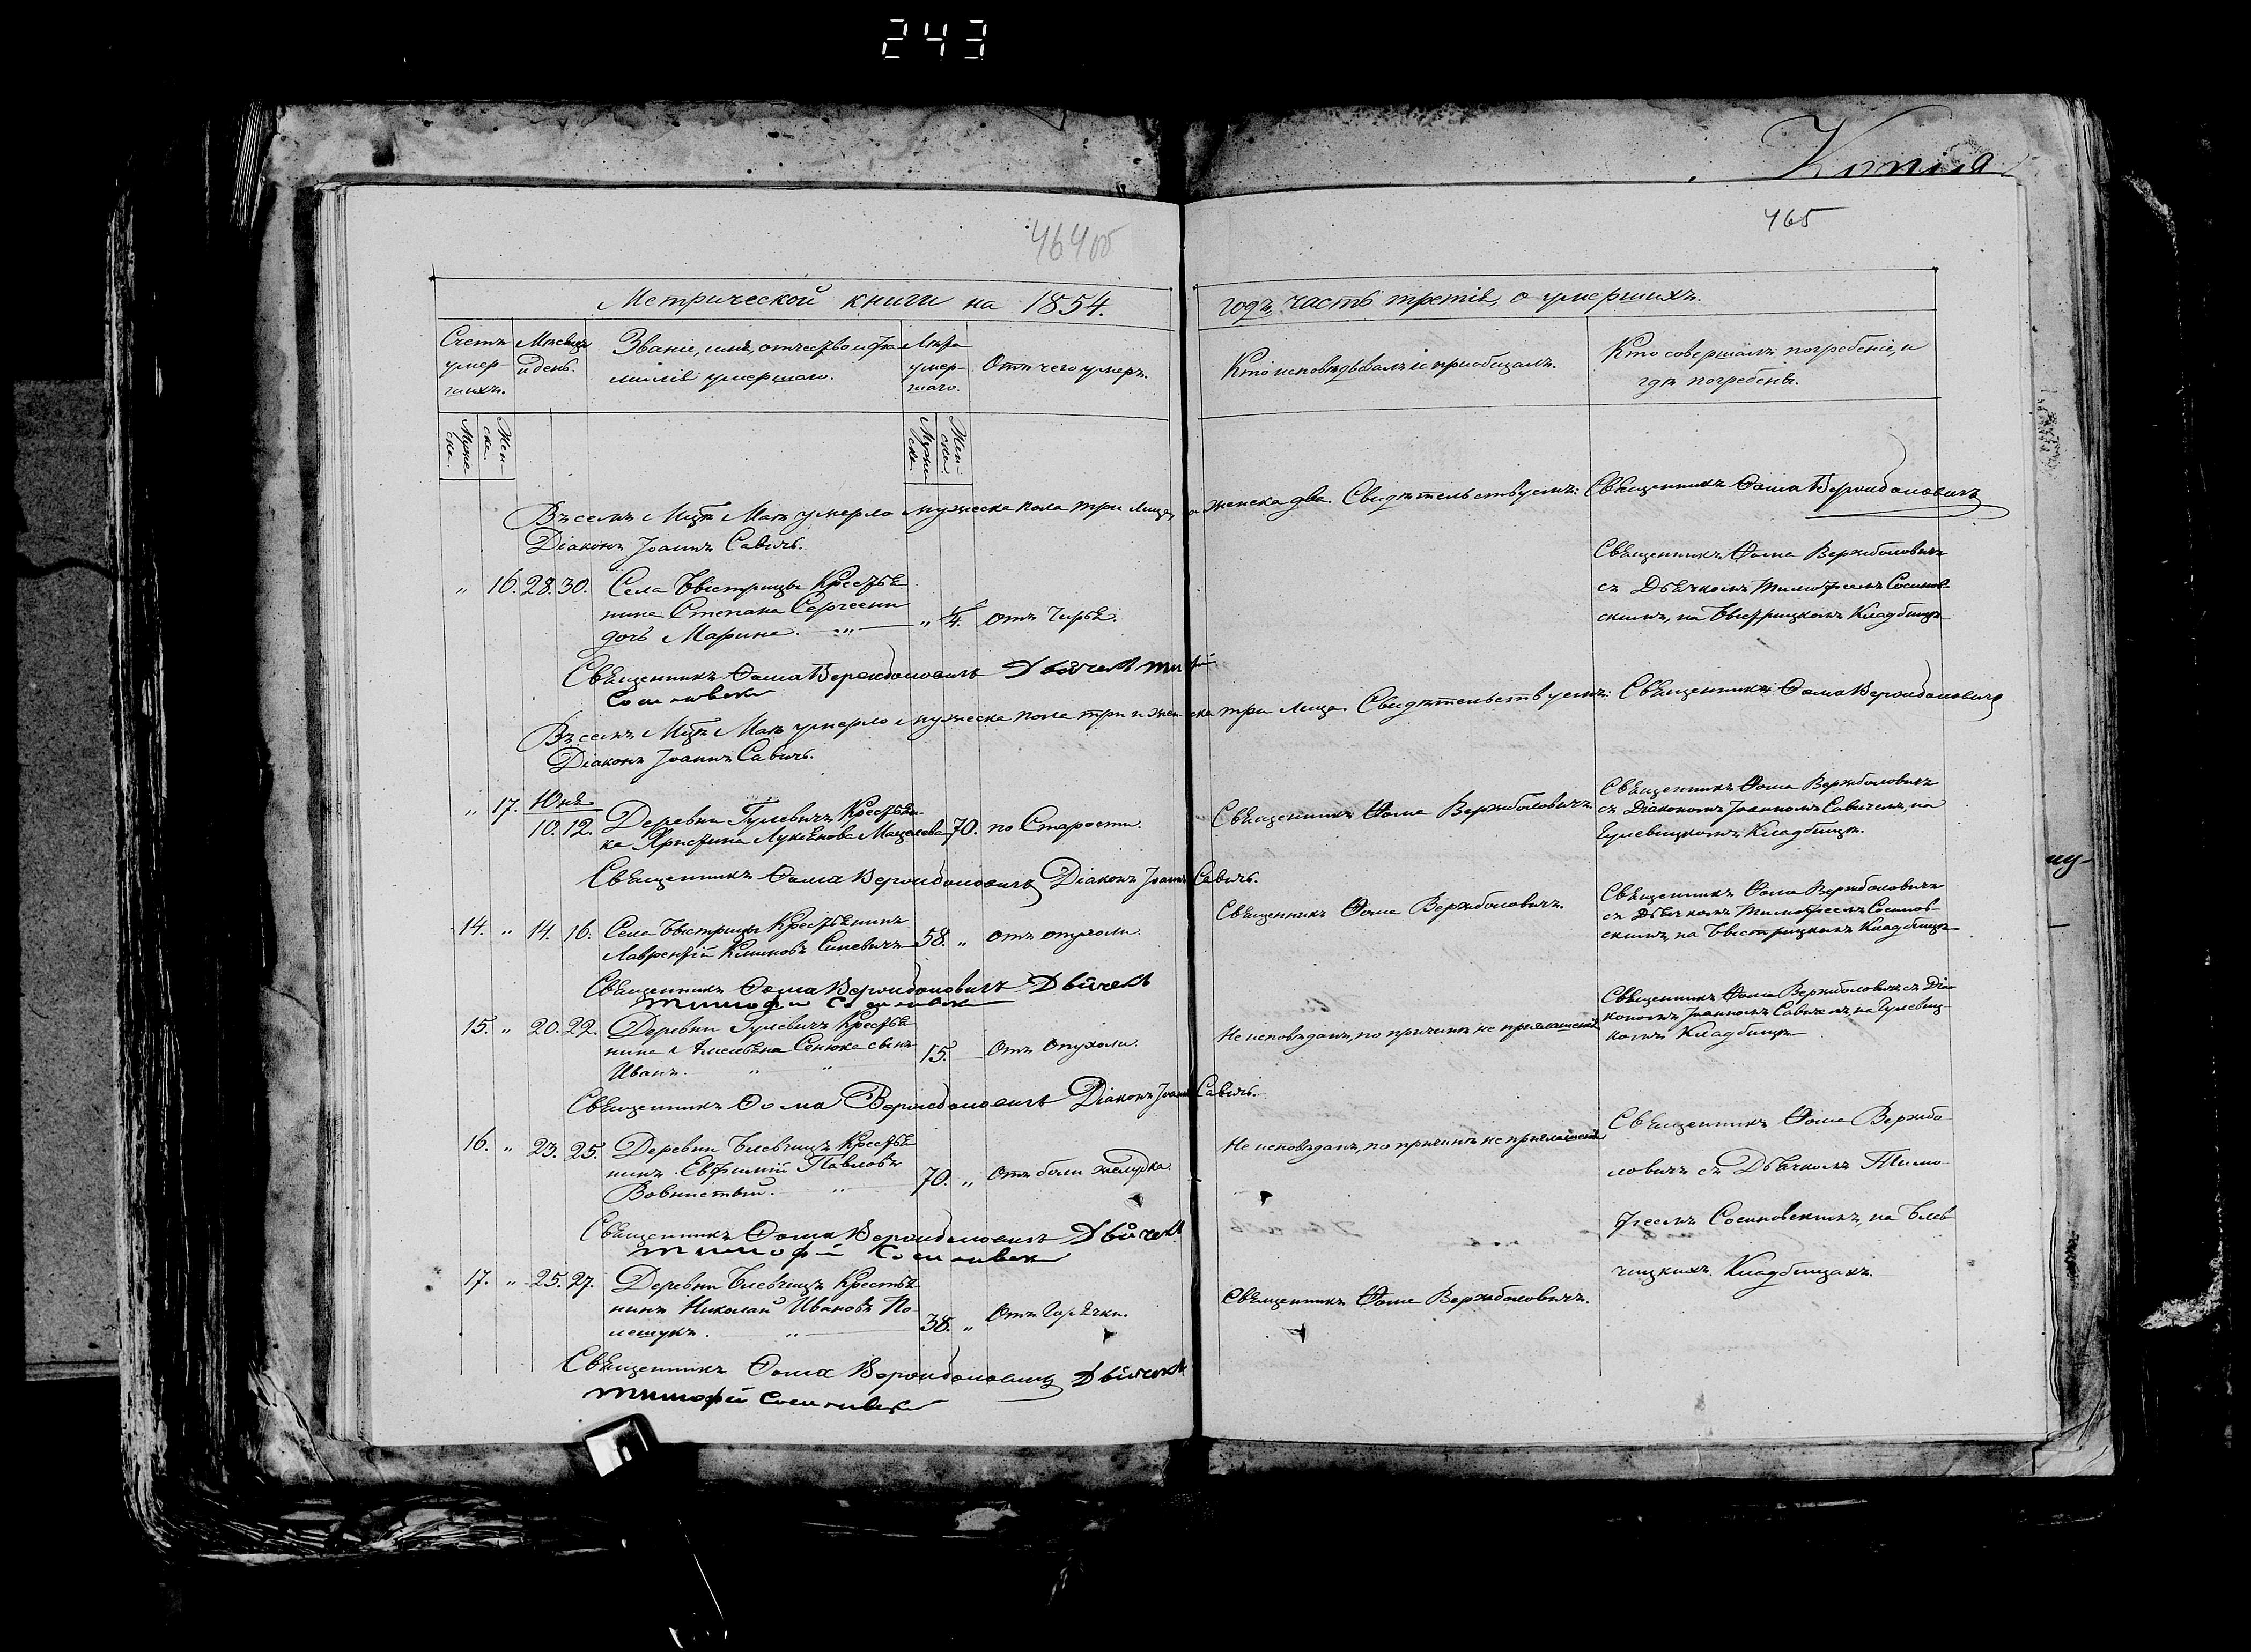 243
Копия
464 об
465
Метрической книги на 1854.
годъ, часть третія, о умершихъ.
Счетъ умер-
шихъ.
Муже
ска.
Жен-
ска.
Мѣсяцъ
и день.
Званіе, имя, отчество и фа-
милія умершаго.
Лѣта
умер-
шаго.
Муже
ска.
Жен-
ска.
Отъ чего умеръ.
Кто исповѣдывалъ и пріобщалъ.
Кто совершалъ погребеніе, и
гдѣ погребены.
Въ семъ М҃цѣ Маѣ умерло мужеска пола три лица, а женска два. Свидѣтельствуемъ: Священникъ Ѳома Вержболовичъ
Діаконъ Іоаннъ Савичъ.
" 16. 28. 30. Села Быстрицы Крестья
нина Степана Сергеени
дочь Марина. " " 4. отъ Чирья.
Священникъ Ѳома Вержболовичъ
съ Дьячкомъ Тимоѳеемъ Сосинов-
скимъ, на Быстрицкомъ Кладбищѣ
Священникъ Ѳома Вержболовичъ Дьячекъ Тимофій
Сосиновски
Въ семъ М҃цѣ Маѣ умерло мужеска пола три и женска три лица. Свидѣтельствуемъ: Священникъ Ѳома Вержболовичъ
Діаконъ Іоаннъ Савичъ.
" 17. Юня
10. 12. Деревни Гулевичъ Крестьян-
ка Христина Лукьянова 70. по Старости.
Священникъ Ѳома Вержболовичъ.
Священникъ Ѳома Вержболовичъ
съ Діакономъ Іоанномъ Савичемъ, на
Гулевицкомъ Кладбищѣ.
Священникъ Ѳома Вержболовичъ Діаконъ Іоаннъ Савичъ.
14. " 14. 16. Села Быстрицы Крестьянинъ
Лаврентій Климовъ Синевичъ 58. " отъ опухоли
Священникъ Ѳома Вержболовичъ.
Священникъ Ѳома Вержболовичъ
съ Дьячкомъ Тимоѳеемъ Сосинов-
скимъ, на Быстрицкомъ Кладбищѣ
Священникъ Ѳома Вержболовичъ Дьячекъ
Тимофи Сосиновски
15. " 20. 22. Деревни Гулевичъ Крестья
нина Амельяна Сенюка сынъ
Иванъ. " " 15. Отъ Опухоли.
Не исповѣданъ, по причинѣ не приглашенія
Священникъ Ѳома Вержболовичъ съ Діа-
кономъ Іоанномъ Савичемъ, на Гулевиц-
комъ Кладбищѣ
Священникъ Ѳома Вержболовичъ Діаконъ Іоаннъ Савичъ.
16. " 23. 25. Деревни Блевчицъ Крестья
нинъ Евфимій Павловъ
" 70. " Отъ боли желудка.
Не исповѣданъ, по причинѣ не приглашенія
Священникъ Ѳома Вержбо
ловичъ съ Дьячкомъ Тимо
ѳеемъ Сосиновскимъ, на Блев
чицкихъ Кладбищахъ.
Священникъ Ѳома Вержболовичъ Дьячекъ
Тимофи Сосиновски
17. " 25. 27. Деревни Блевчицъ Крестья
нинъ Николай Ивановъ По-
лещукъ. " 38. " Отъ Горячки.
Священникъ Ѳома Вержболовичъ.
Священникъ Ѳома Вержболовичъ Дьячекъ
Тимофій Сосиновски